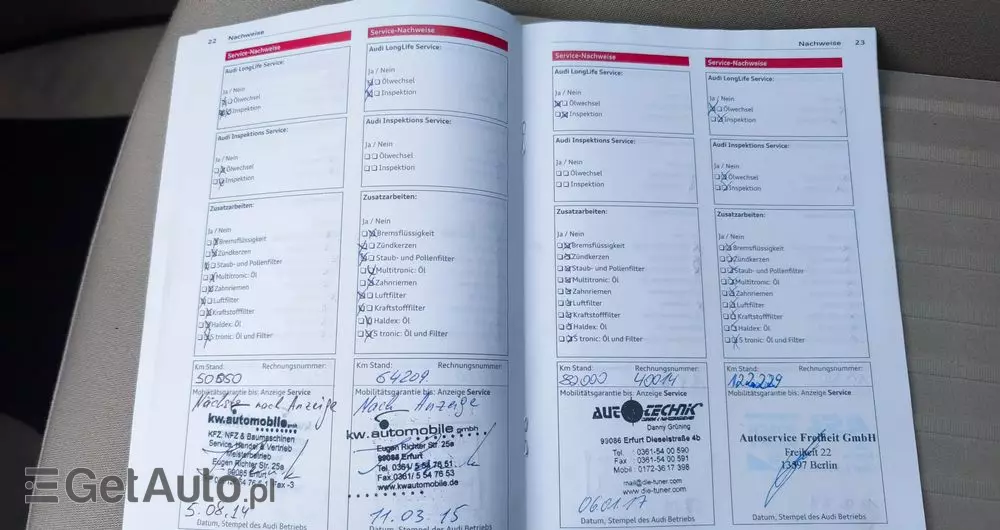 22 Nachweise
Service-Nachweise
Audi LongLife Service:
Ja / Nein
Ölwechsel
Inspektion
Audi Inspektions Service:
Ja / Nein
Ölwechsel
Inspektion
Zusatzarbeiten:
Ja / Nein
Bremsflüssigkeit
Zündkerzen
Staub- und Pollenfilter
Multitronic: Öl
Zahnriemen
Luftfilter
Kraftstofffilter
Haldex: Öl
S tronic: Öl und Filter
Km Stand: Rechnungsnummer:
50550
Mobilitätsgarantie bis: Anzeige Service
Nächste nach Anzeige
kw.automobile gmbh
KFZ, NFZ & Baumaschinen
Service, Handel & Vertrieb
Meisterbetrieb
Eugen Richter Str. 25a
99085 Erfurt
5.08.14
Datum, Stempel des Audi Betriebs
Service-Nachweise
Audi LongLife Service:
Ja / Nein
Ölwechsel
Inspektion
Audi Inspektions Service:
Ja / Nein
Ölwechsel
Inspektion
Zusatzarbeiten:
Ja / Nein
Bremsflüssigkeit
Zündkerzen
Staub- und Pollenfilter
Multitronic: Öl
Zahnriemen
Luftfilter
Kraftstofffilter
Haldex: Öl
S tronic: Öl und Filter
Km Stand: Rechnungsnummer:
64209.
Mobilitätsgarantie bis: Anzeige Service
Nach Anzeige
kw.automobile gmbh
Eugen Richter Str. 25a
99085 Erfurt
Tel. 0361/ 5 54 76 51
Fax 0361/ 5 54 76 53
www.kwautomobile.de
11.03.15
Datum, Stempel des Audi Betriebs
Nachweise 23
Service-Nachweise
Audi LongLife Service:
Ja / Nein
Ölwechsel
Inspektion
Audi Inspektions Service:
Ja / Nein
Ölwechsel
Inspektion
Zusatzarbeiten:
Ja / Nein
Bremsflüssigkeit
Zündkerzen
Staub- und Pollenfilter
Multitronic: Öl
Zahnriemen
Luftfilter
Kraftstofffilter
Haldex: Öl
S tronic: Öl und Filter
Km Stand: Rechnungsnummer:
40014
Mobilitätsgarantie bis: Anzeige Service
AUTOTECHNIK
Danny Grüning
99086 Erfurt Dieselstraße 4b
Tel. : 0361-54 00 590
Fax : 0361-54 00 591
Mobil : 0172-36 17 398
mail@die-tuner.com
die-tuner.com
06.01.17
Datum, Stempel des Audi Betriebs
Service-Nachweise
Audi LongLife Service:
Ja / Nein
Ölwechsel
Inspektion
Audi Inspektions Service:
Ja / Nein
Ölwechsel
Inspektion
Zusatzarbeiten:
Ja / Nein
Bremsflüssigkeit
Zündkerzen
Staub- und Pollenfilter
Multitronic: Öl
Zahnriemen
Luftfilter
Kraftstofffilter
Haldex: Öl
S tronic: Öl und Filter
Km Stand: Rechnungsnummer:
122229
Mobilitätsgarantie bis: Anzeige Service
Autoservice Froiheit GmbH
Freiheit 22
13597 Berlin
Datum, Stempel des Audi Betriebs
GetAuto.pl